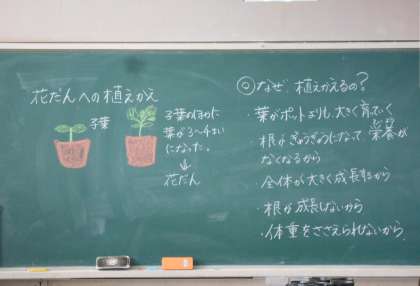 花だんへの植えかえ
子葉
子葉のほかに
葉が3〜4まい
になった。
↓
花だん
◎なぜ、植えかえるの?
・葉がポットよりも、大きく育っていく
・根がぎゅうぎゅうになって栄養が
なくなるから
・全体が大きく成長するから
・根が成長しないから
・体重をささえられないから。